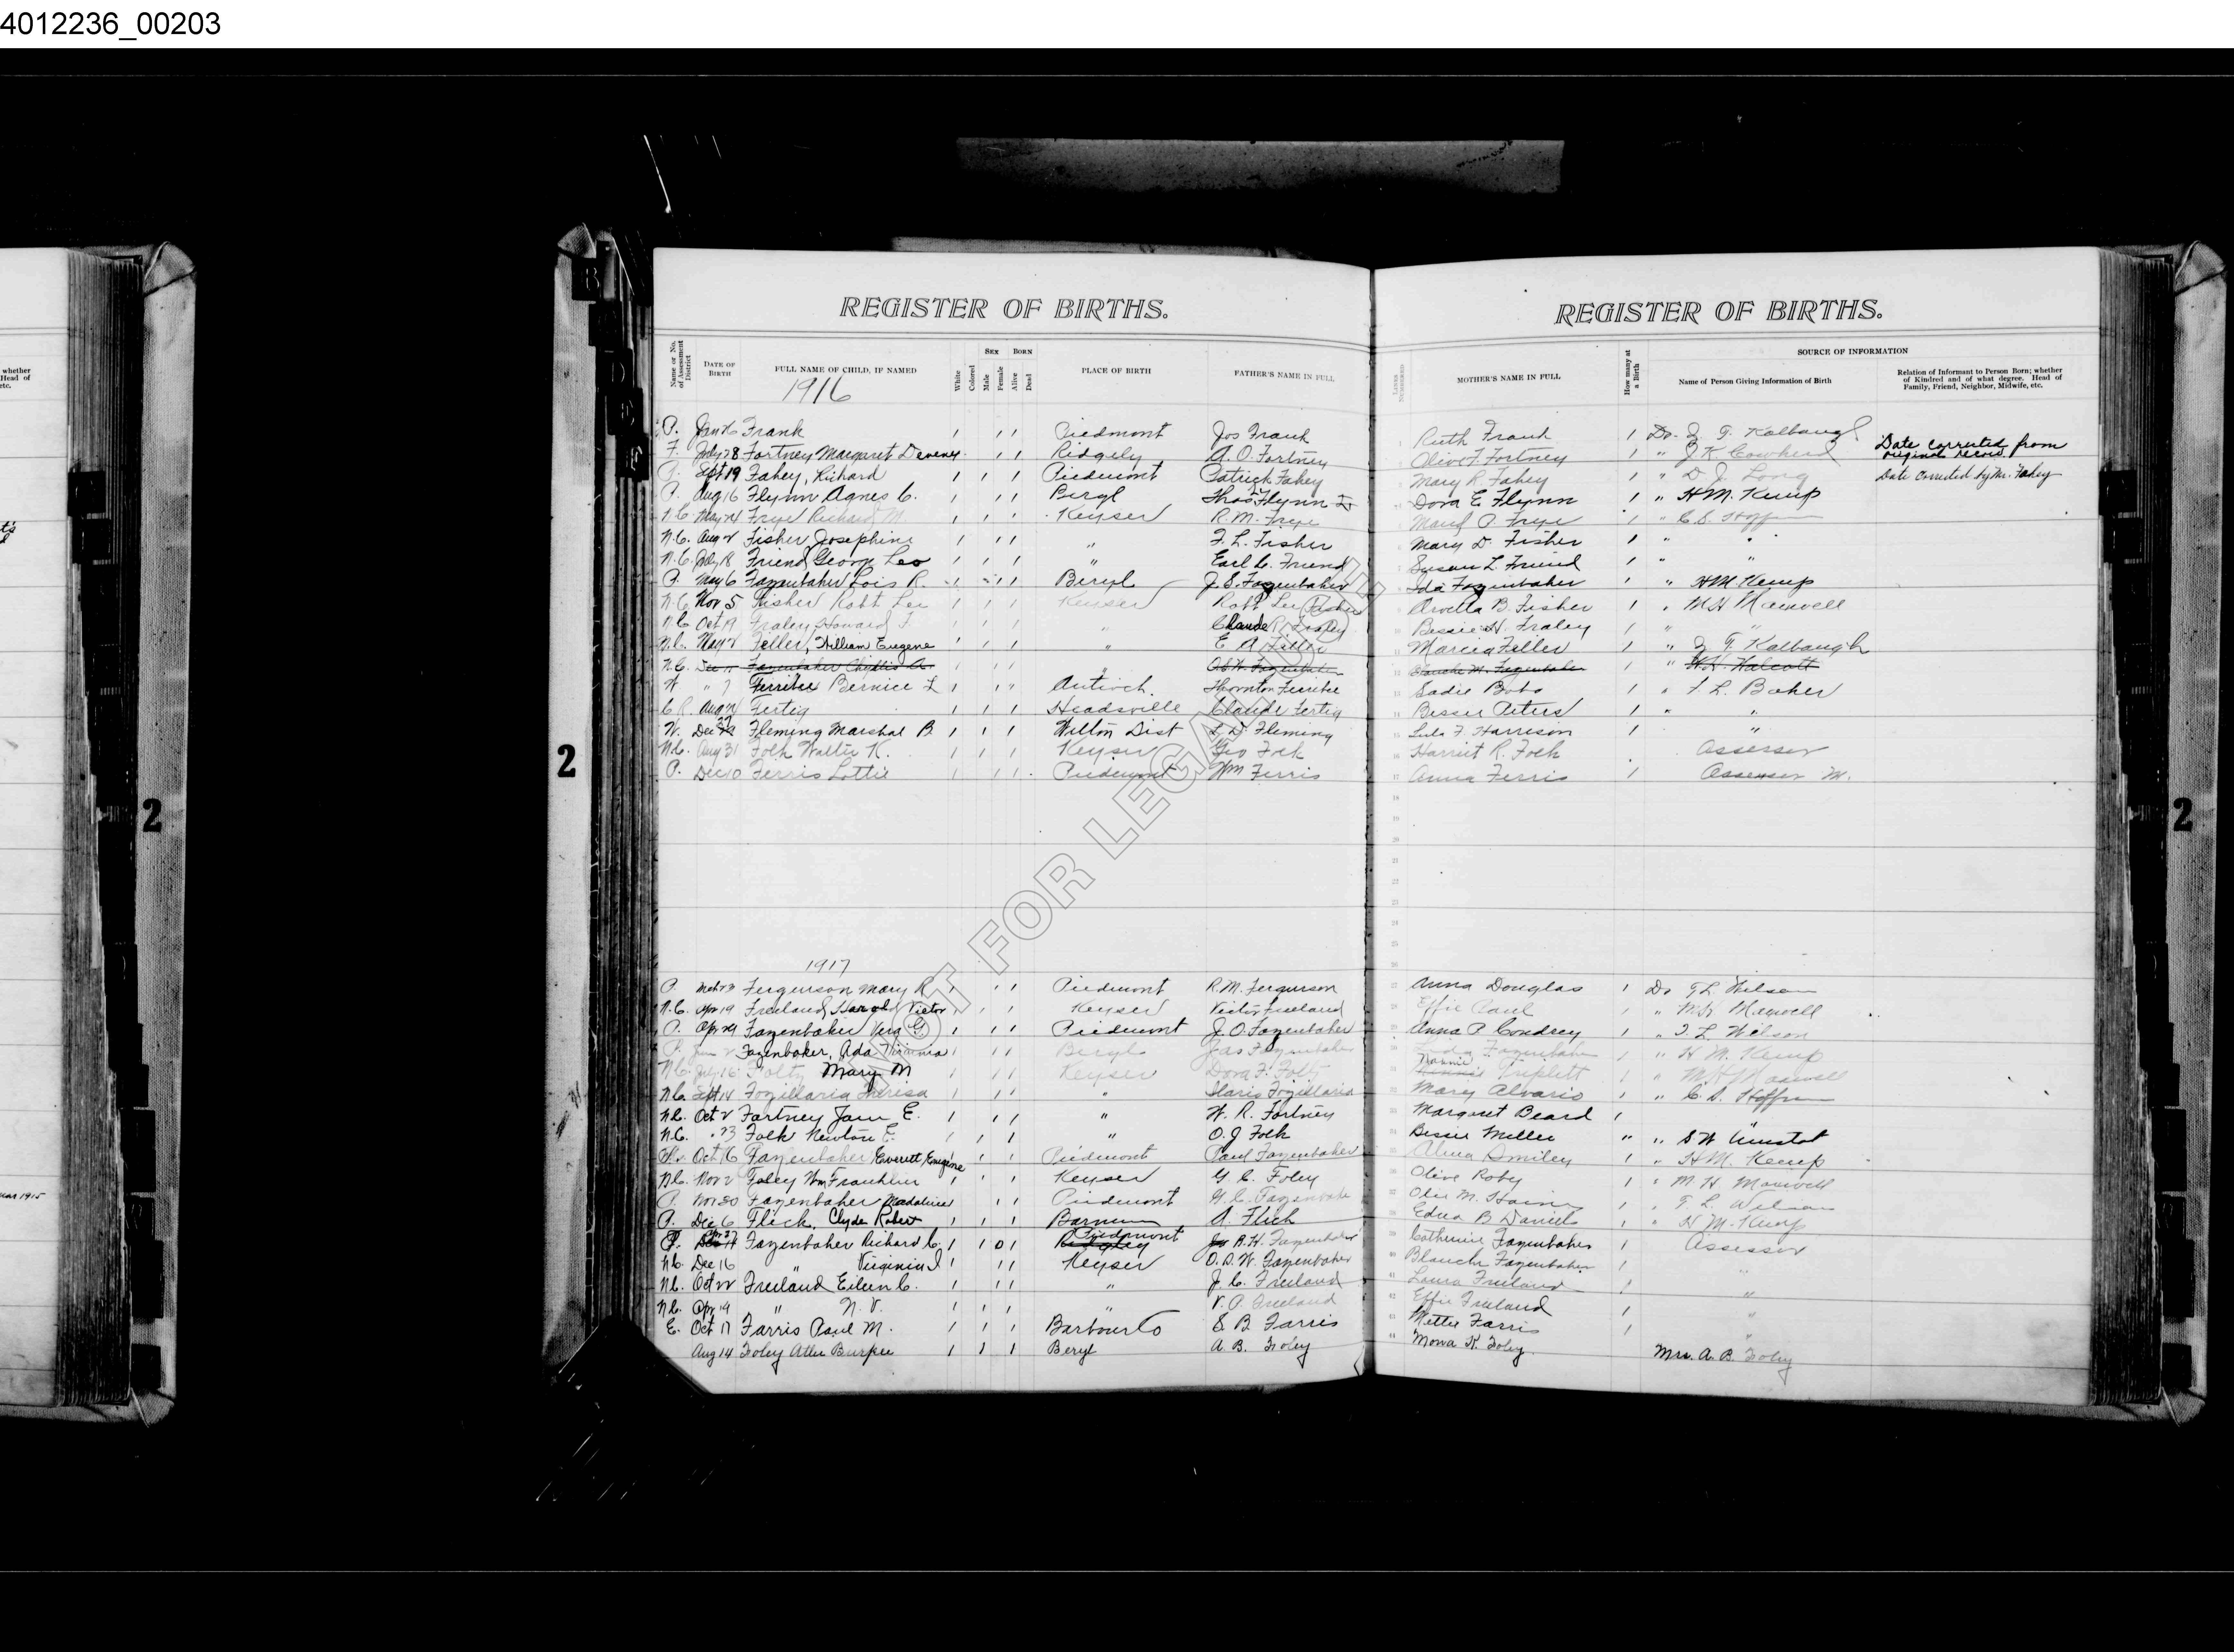 4012236_00203
whether
Head of
etc.
REGISTER OF BIRTHS.
REGISTER OF BIRTHS.
Name or No. of Assessment District DATE OF BIRTH FULL NAME OF CHILD, IF NAMED White Colored SEX Male Female BORN Alive Dead PLACE OF BIRTH FATHER'S NAME IN FULL LINES NUMBERED MOTHER'S NAME IN FULL How many at a Birth SOURCE OF INFORMATION Name of Person Giving Information of Birth Relation of Informant to Person Born; whether of Kindred and of what degree. Head of Family, Friend, Neighbor, Midwife, etc.
1916
P. Jan 26 Frank 1 1 1 Piedmont Jos Frank Ruth Frank 1 Dr. Kalbaugh
F. July 28 Fortney Margaret Deveney 1 1 Ridgely A. O. Fortney Olive F. Fortney 1 " J K Cowherd Date corrected from original record
P. Sept 19 Fahey, Richard 1 1 1 Piedmont Patrick Fahey Mary R Fahey 1 " D. J. Long Date corrected by Mr. Fahey
P. Aug 16 Flynn Agnes C. 1 1 1 Beryl Thos Flynn Dora E Flynn 1 " H M. Kemp
N.C. May 24 Frye Richard M 1 1 1 Keyser R. M. Frye Maud P. Frye 1 " C. S. Hoffman
N.C. Aug 2 Fisher Josephine 1 1 1 " F. L. Fisher Mary D. Fisher 1 " "
N.C. July 18 Friend George Leo 1 1 1 " Earl C. Friend Susan L Friend 1 " "
P. May 6 Fazenbaker Lois R. 1 1 1 Beryl J. S. Fazenbaker Ida Fazenbaker 1 " H M Kemp
N.C. Nov 5 Fisher Robt Lee 1 1 1 Keyser Robt Lee Fisher Arvella B. Fisher 1 " M H Maxwell
N.C. Oct 19 Fraley Howard F 1 1 1 " Claude R Fraley Bessie H. Fraley 1 " "
N.C. May 2 Feller, William Eugene 1 1 1 " E A Feller Marcia Feller 1 " Kalbaugh
N.C. Dec Fazenbaker Phyllis A. 1 1 1 " Fazenbaker M. Fazenbaker 1 " Walcott
W " 7 Ferribee Bernice L 1 1 " Antioch. Thornton Ferribee Sadie Bobo 1 " F. L. Baker
C R. Aug Fertig 1 1 1 Headsville Claude Fertig Bessie Peters 1 " "
W. Dec 27 Fleming Marshal B. 1 1 1 Welton Dist L D. Fleming Lula F. Harrison 1 "
N.C. Aug 31 Folk Walter K. 1 1 1 Keyser Geo Folk Harriet R. Folk Assessor
P. Dec 10 Ferris Lottie 1 1 1 Piedmont Wm Ferris Anna Ferris 1 Assessor M.
1917
P. Ferguson Mary R 1 1 Piedmont R. M. Ferguson Anna Douglas 1 Dr T L. Wilson
N.C. Apr 19 Freeland, Harold Victor 1 1 Keyser Victor Freeland Effie Paul 1 " M H Maxwell
P. Apr 29 Fazenbaker 1 1 1 Piedmont J. O. Fazenbaker Anna P. Condrey 1 " T. L. Wilson
P. Jun 2 Fazenbaker, Ada Virginia 1 1 1 Beryl Jas Fazenbaker Fazenbaker 1 " H M. Kemp
N.C. July 16 Foltz Mary M 1 1 1 Keyser Foltz Nannie Triplett 1 " M H Maxwell
N.C. Sept 14 Theresa 1 1 1 " Ilario Mary Alvario 1 " C. S. Hoffman
N.C. Oct 2 Fortney Jane E. 1 1 1 " W. R. Fortney Margaret Beard 1
N.C. " 23 Folk Newton E. 1 1 1 " O. J Folk Bessie Miller " "
P. Oct 16 Fazenbaker Everett Eugene 1 1 Piedmont Paul Fazenbaker Alma Smiley 1 " H M. Kemp
N.C. Nov 2 Foley Wm Franklin 1 1 1 Keyser G. C. Foley Olive Roby 1 " M H Maxwell
P. Nov 20 Fazenbaker Madaline 1 1 Piedmont G. C. Fazenbaker 1 " T. L. Wilson
P. Dec 6 Flick, Clyde Robert 1 1 1 Barnum A. Flick Edna B Daniels 1 " H M. Kemp
P. 27 Fazenbaker Richard C. 1 1 0 1 Piedmont R. H. Fazenbaker Catherine Fazenbaker 1 Assessor
N.C. Dec 16 " Virginia I 1 1 1 Keyser O. S. W. Fazenbaker Blanche Fazenbaker 1 "
N.C. Oct 22 Freeland Eileen C. 1 1 1 " J. C. Freeland Laura Freeland 1 "
N.C. Apr 19 " N. V. 1 1 1 " V. P. Freeland Effie Freeland 1 "
E. Oct 17 Farris Paul M. 1 1 1 Barbour Co S. B. Farris Mettie Farris 1 "
Aug 14 Foley Atlee Burpee 1 1 1 Beryl A. B. Foley Mona K. Foley. Mrs. A. B. Foley
NOT FOR LEGAL USE
2
2
2